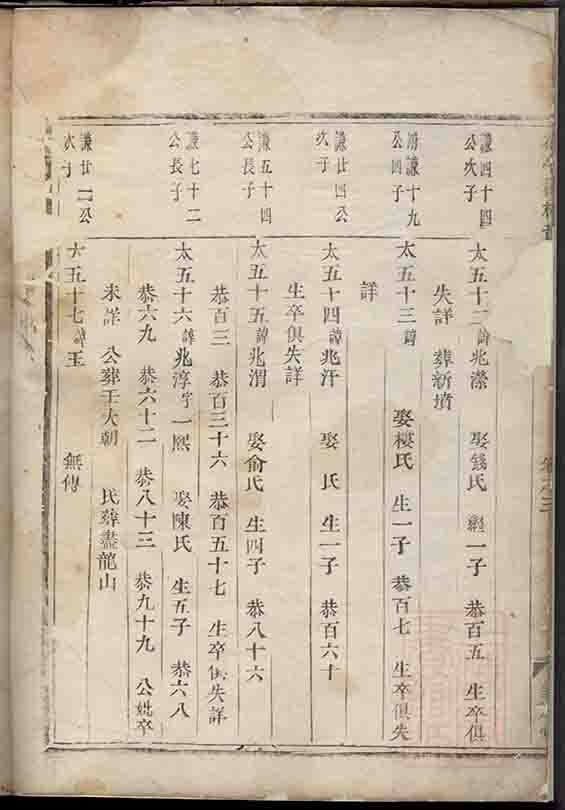 謙四十四
公次子
太五十二諱兆濴　娶錢氏　繼一子　恭百五　生卒俱
失詳　葬新墳
謙十九
公四子
太五十三諱　娶樓氏　生一子　恭百七　生卒俱失
詳
謙廿四公
次子
太五十四諱兆汗　娶　氏　生一子　恭百六十
生卒俱失詳
謙五十四
公長子
太五十五諱兆渭　娶俞氏　生四子　恭八十六
恭百三　恭百三十六　恭百五十七　生卒俱失詳
謙七十二
公長子
太五十六諱兆浮字一熙　娶陳氏　生五子　恭六八
恭六九　恭六十二　恭八十三　恭九十九　公妣卒
未詳　公葬王大朝　氏葬盡龍山
謙廿二公
次子
太五十七諱玉　無傳